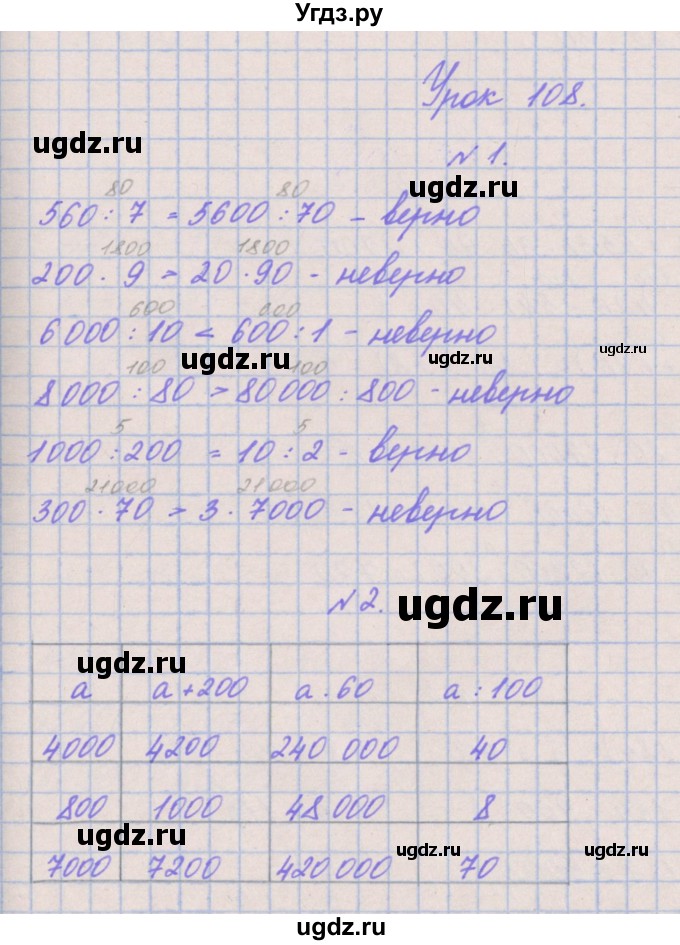 Угдз.ру
Урок 108.
ugdz.ru
№ 1.
ugdz.ru
80 80
560 : 7 = 5600 : 70 - верно
1800 1800
200 · 9 > 20 · 90 - неверно
600 600
6000 : 10 < 600 : 1 - неверно
ugdz.ru ugdz.ru
100 100
8000 : 80 > 80000 : 800 - неверно
5 5
1000 : 200 = 10 : 2 - верно
21000 21000
300 · 70 > 3 · 7000 - неверно
№ 2. ugdz.ru
ugdz.ru
а а + 200 а · 60 а : 100
4000 4200 240 000 40
800 1000 48 000 8
ugdz.ru ugdz.ru ugdz.ru
7000 7200 420 000 70
ugdz.ru